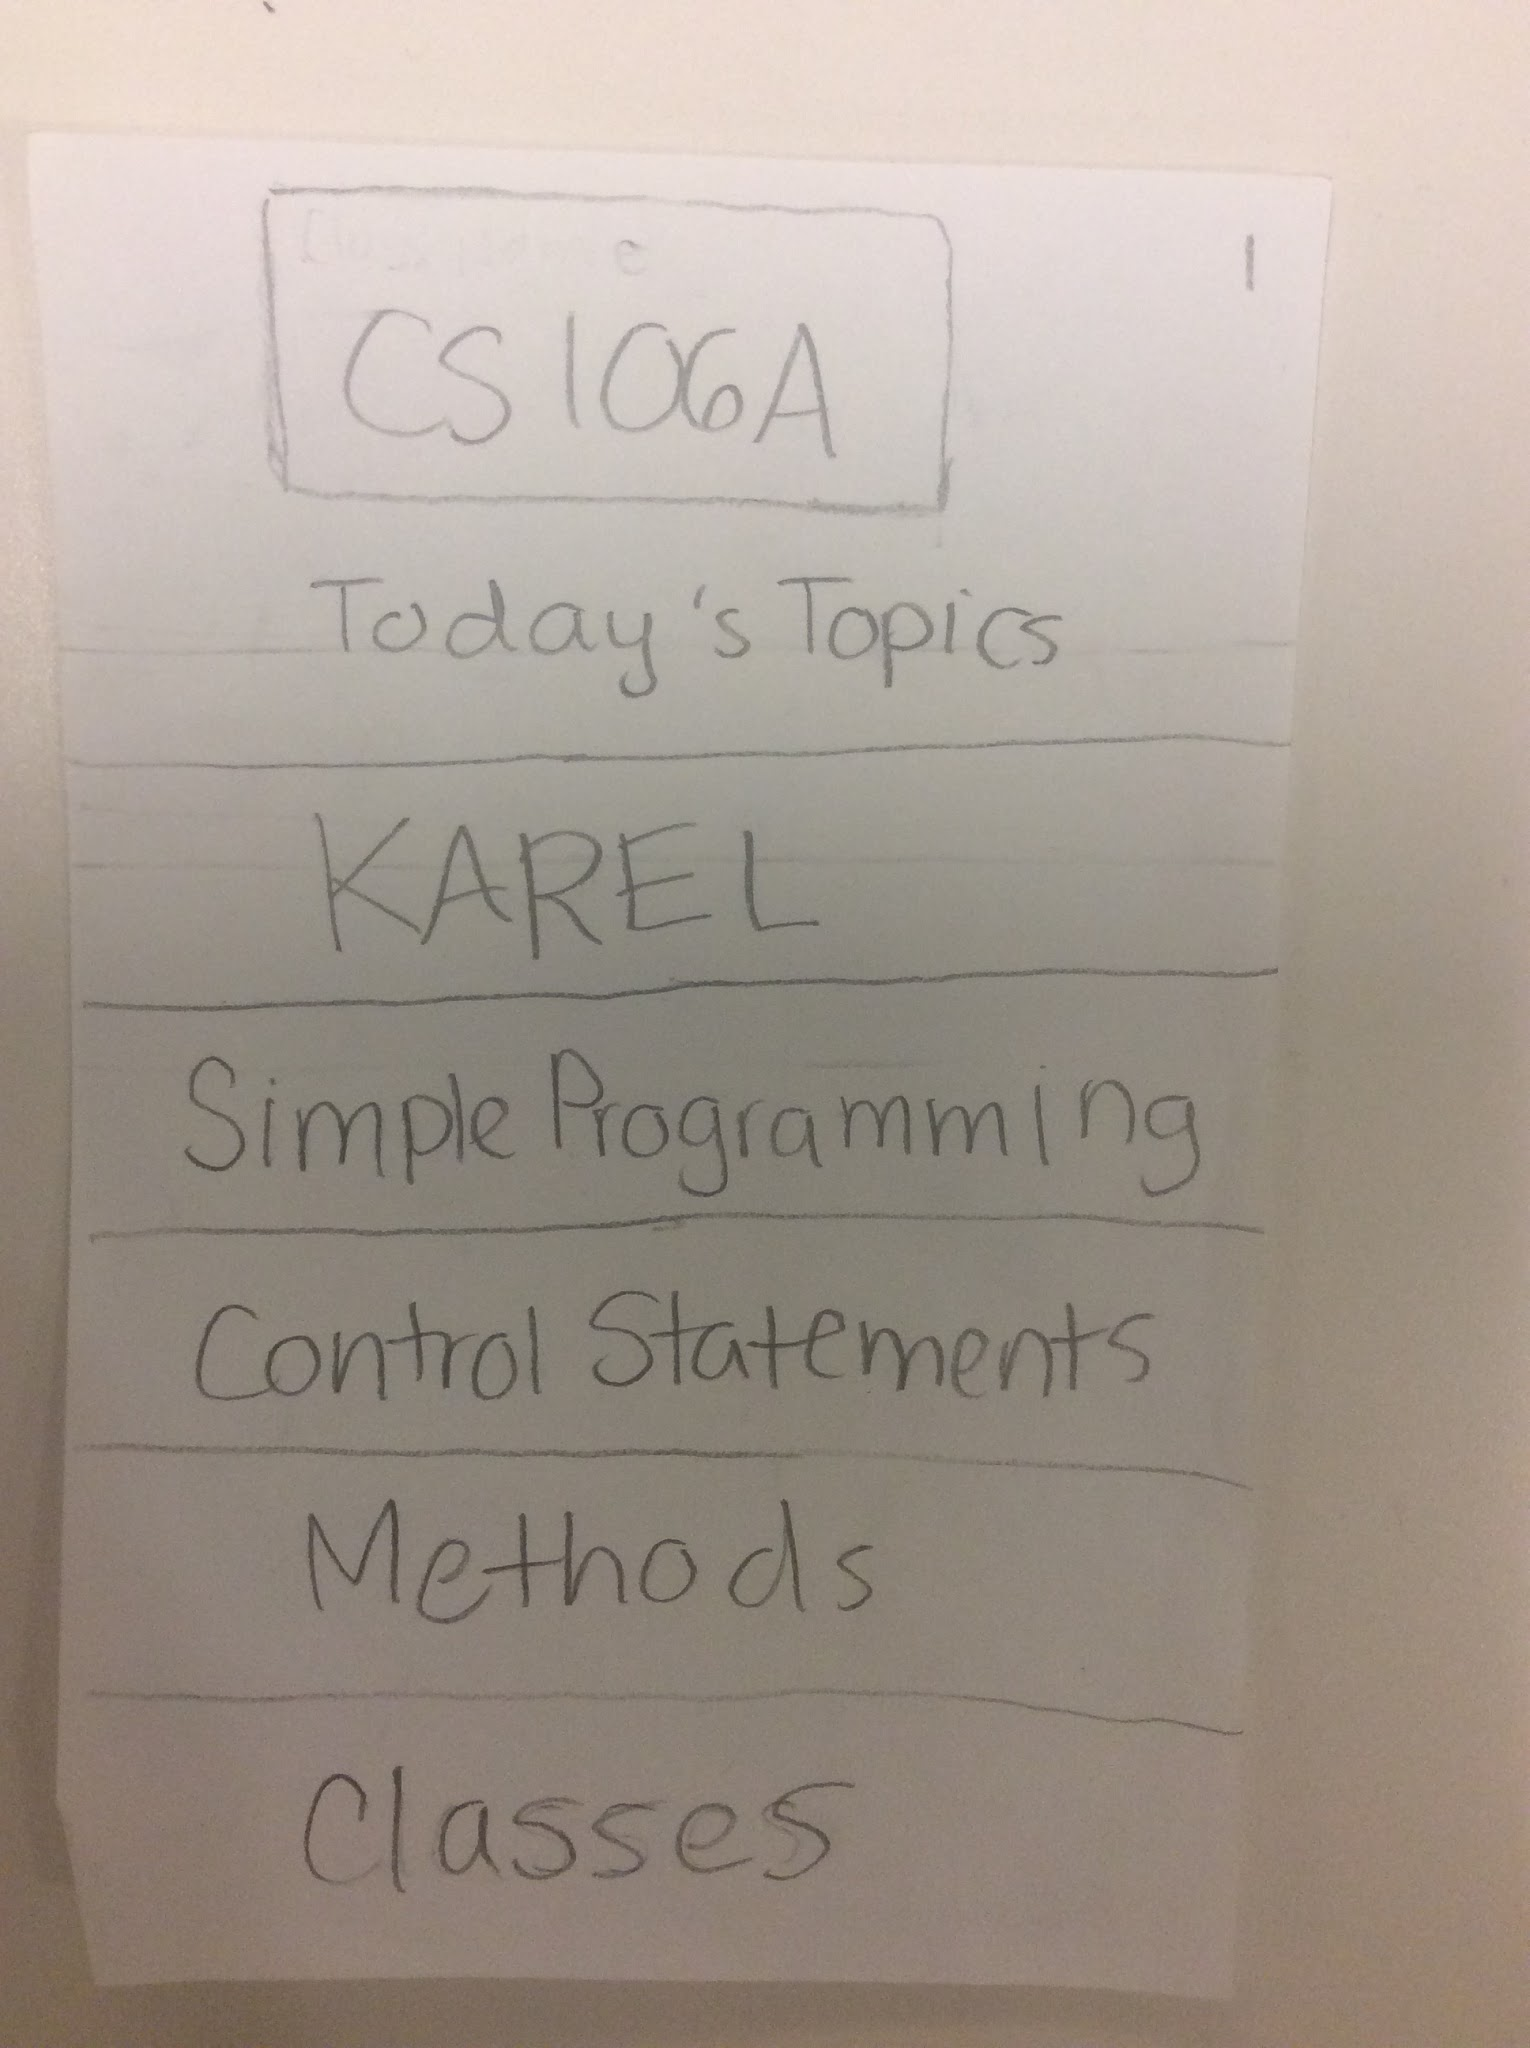 1
CS106A
Today's Topics
KAREL
Simple Programming
Control Statements
Methods
Classes